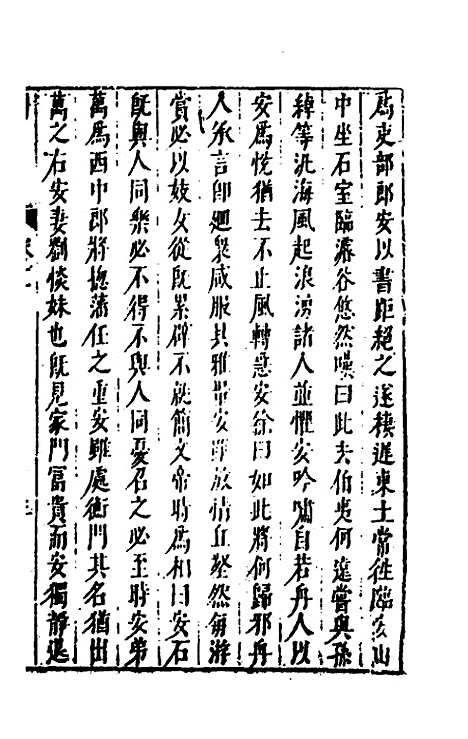 爲吏部郎安以書距絕之遂棲遲東土常徃臨安山
中坐石室臨濬谷悠然嘆曰此去伯夷何遠嘗與孫
綽等汎海風起浪湧諸人並懼安吟嘯自若舟人以
安爲悅猶去不止風轉急安徐曰如此將何歸邪舟
人承言卽迴衆咸服其雅量安雖放情丘壑然每游
賞必以妓女從旣累辟不就簡文帝時爲相曰安石
旣與人同樂必不得不與人同憂召之必至時安弟
萬爲西中郎將揔藩任之重安雖處衡門其名猶出
萬之右安妻劉惔妹也旣見家門富貴而安獨靜退